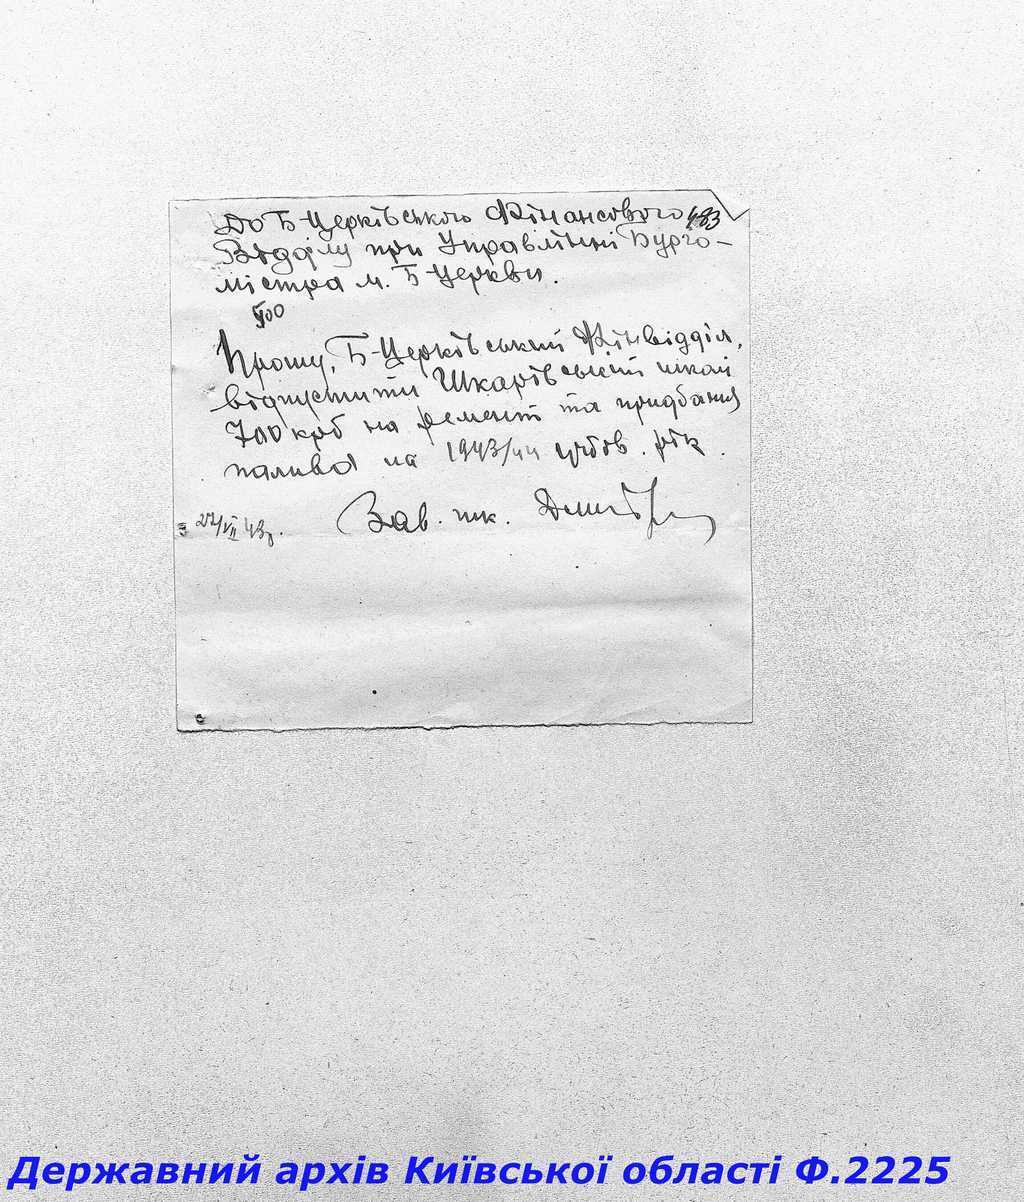 До Б-Церківського Фінансового 483
Відділу при Управлінні Бурго-
містра м. Б-Церкви.
Прошу, Б-Церківський Фінвідділ,
відпустити Шкарівській школі
700 крб на ремонт та придбання
палива на 1943/44 учбов. рік.
22/VII 43р. Зав. шк.
Державний архів Київської області Ф.2225